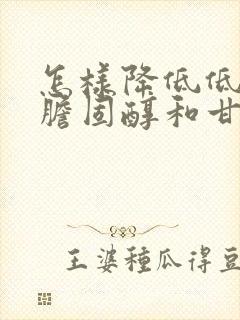 怎様降低低
膽固醇和甘
王婆種瓜得豆